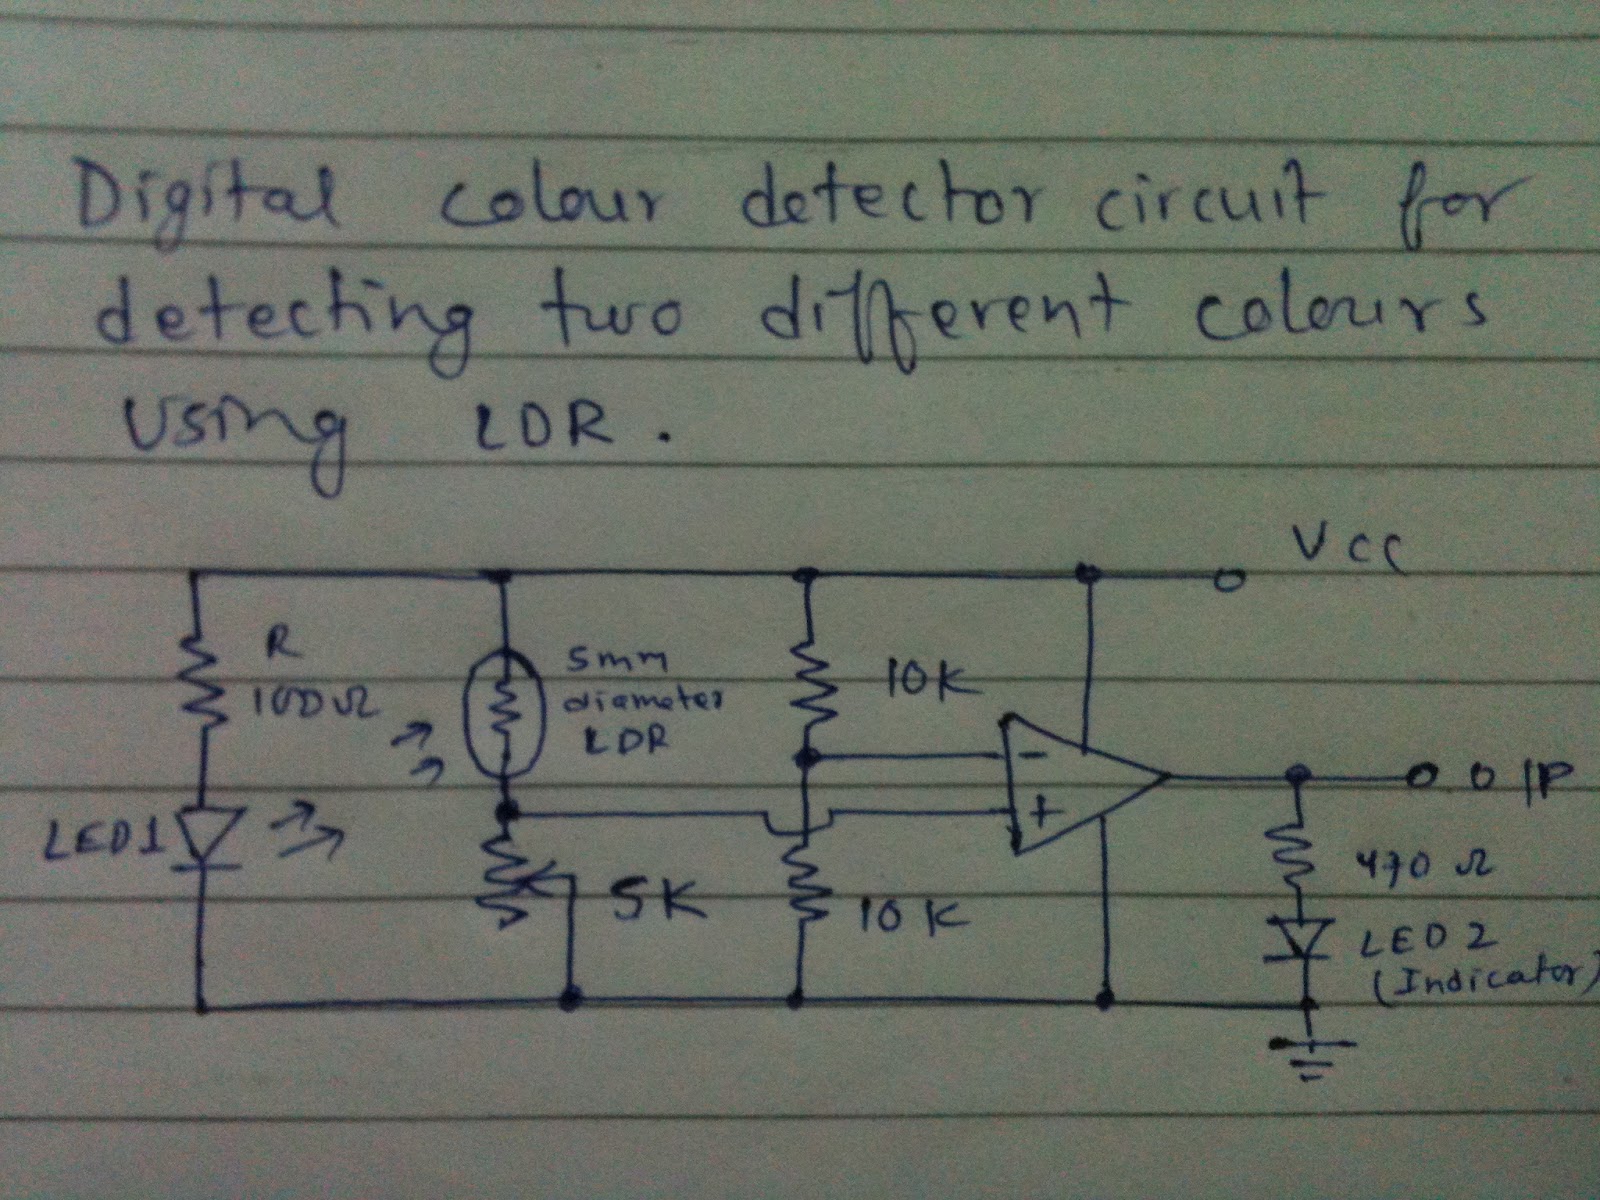 Digital colour detector circuit for
detecting two different colours
using LDR.
Vcc
R
100Ω
5mm
diameter
LDR
10K
-
+
O/P
LED1
5K
10K
470Ω
LED2
(Indicator)